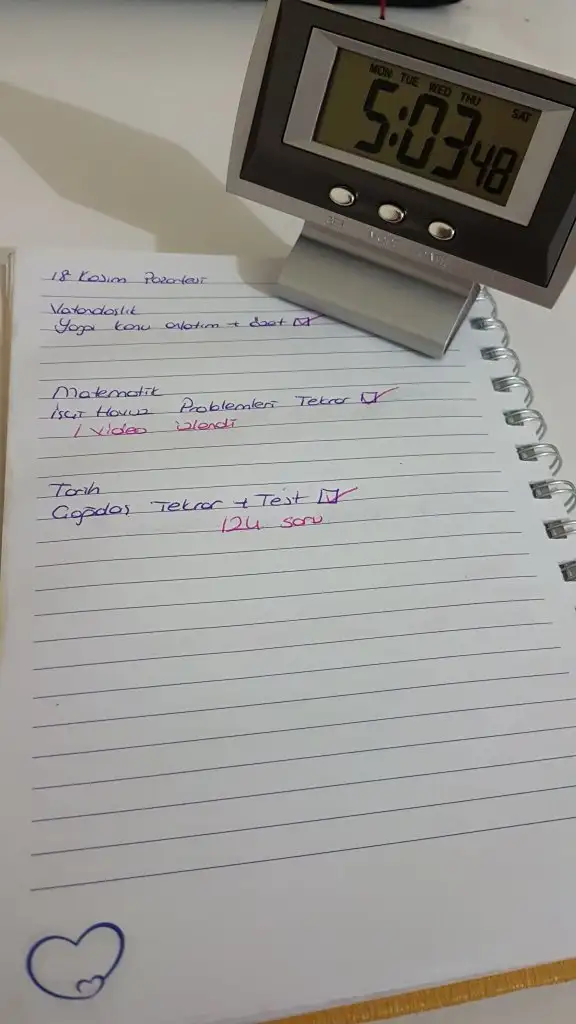 MON TUE WED THU SAT
5:03 48
18 Kasım Pazartesi
Vatandaşlık
Yargı konu anlatım + özet
Matematik
İşçi Havuz Problemleri Tekrar
1 video izlendi
Tarih
Çağdaş Tekrar + Test
124 soru